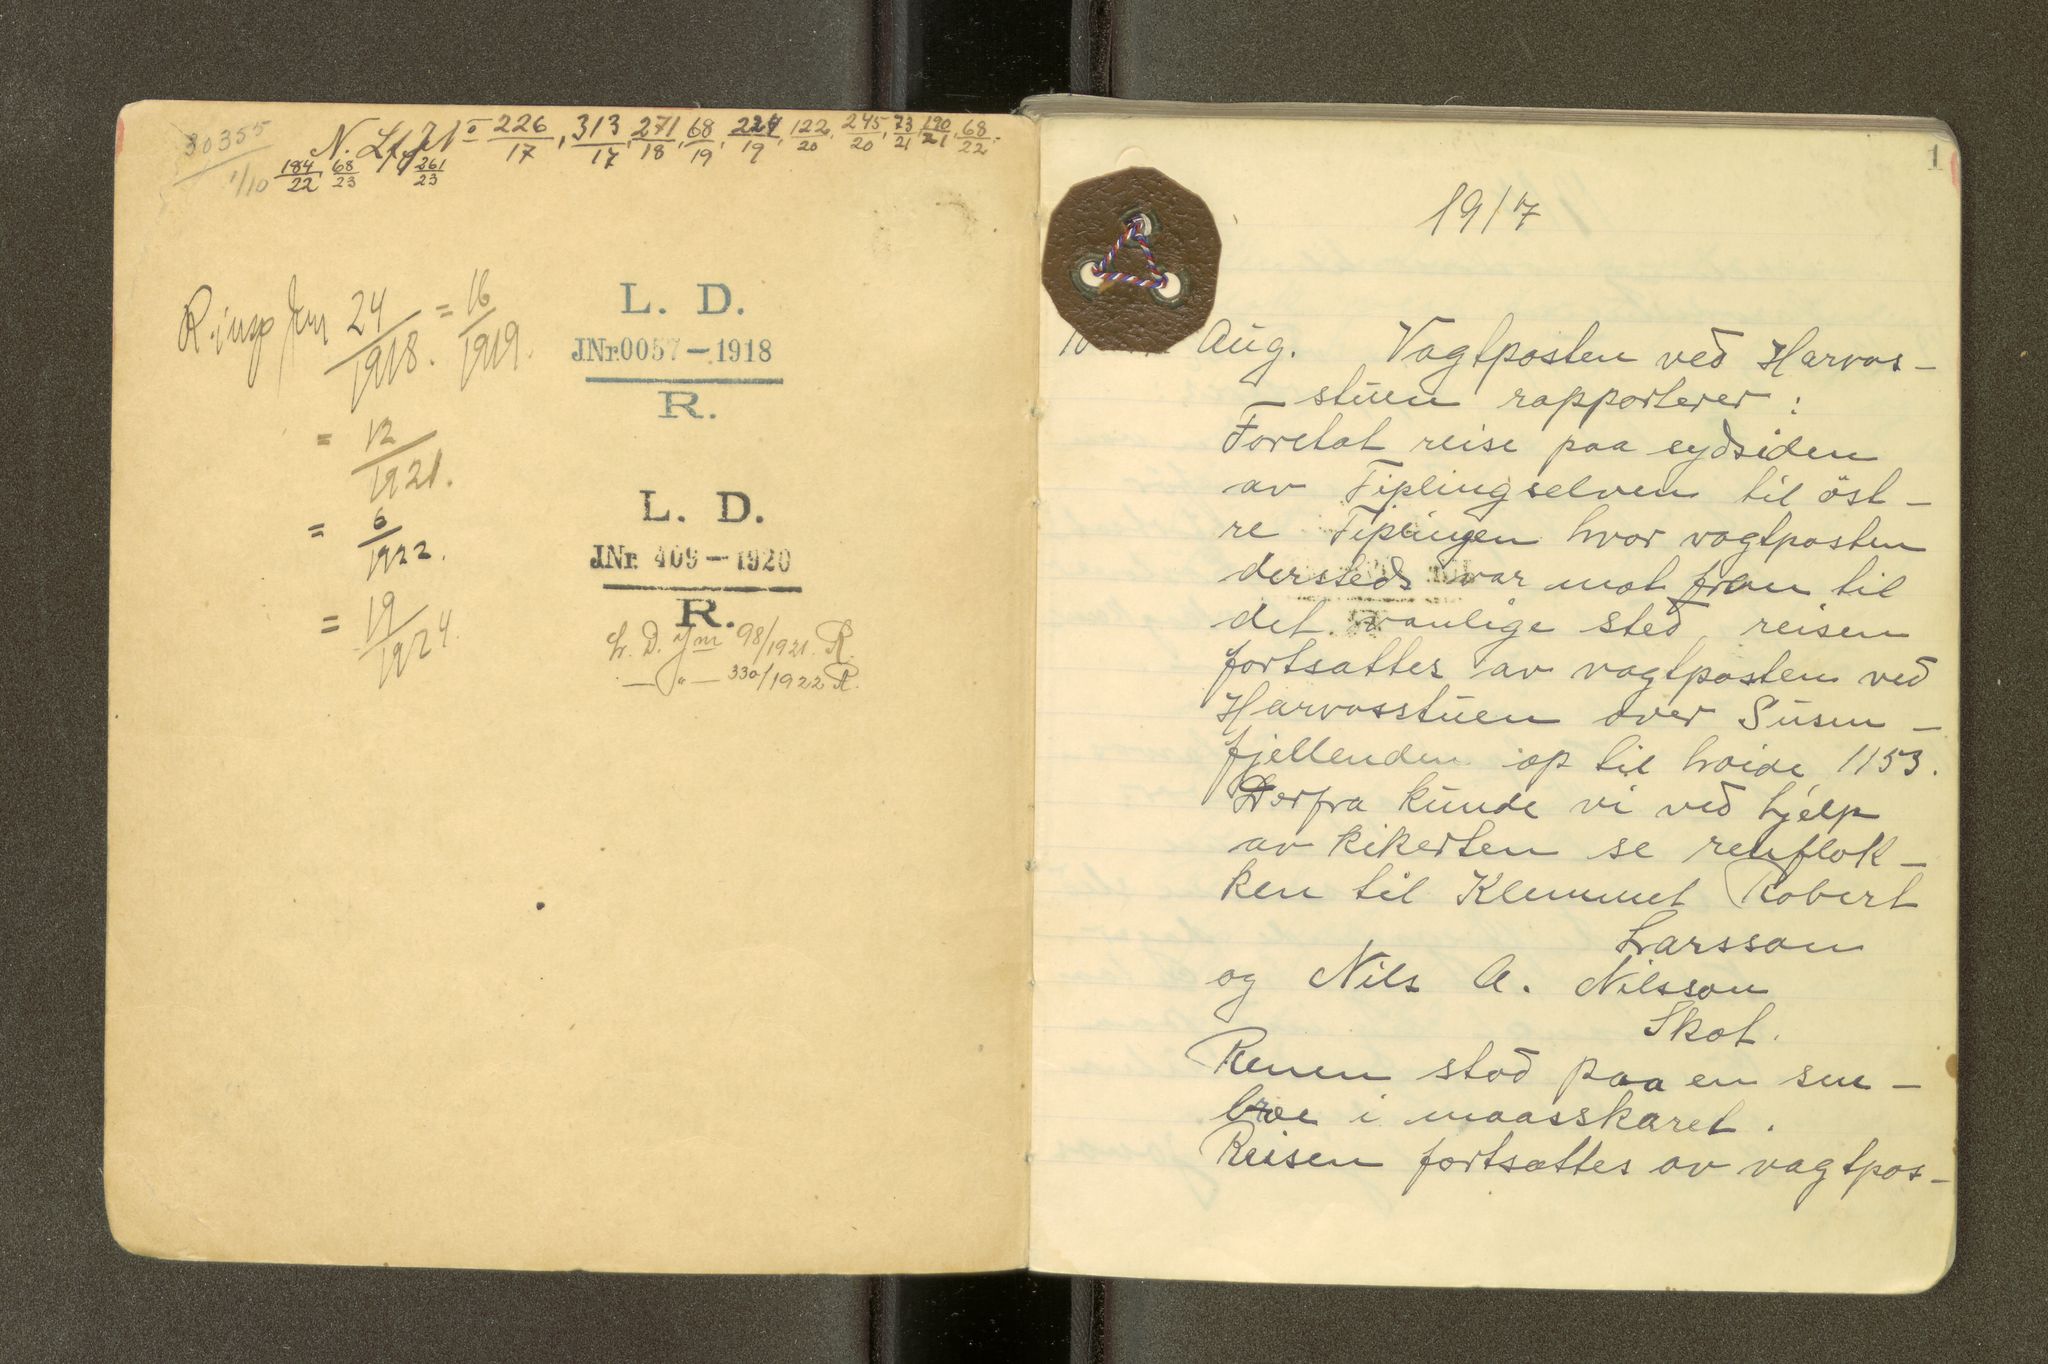 30355
1/10
N. Lf. J No 226/17, 313/17, 271/18, 68/19, 224/19, 122/20, 245/20, 73/21, 190/21, 68/22.
184/22 68/23 261/23
24/1918. = 16/1919.
= 12/1921.
= 6/1922.
= 19/1924.
L. D.
J.Nr. 0057-1918
R.
L. D.
J.Nr. 409-1920
R.
L. D. Jnr 98/1921. R.
— " — 330/1922 R.
1
1917
Aug. Vagtposten ved Harvas-
stuen rapporterer:
Foretat reise paa sydsiden
av Tiplingselven til öst-
re Tiplingen hvor vagtposten
dersteds var møt fram til
det vanlige sted, reisen
fortsattes av vagtposten ved
Harvasstuen over Susen-
fjellenden op til høide 1153.
Derfra kunde vi ved hjelp
av kikerten se renflok-
ken til Klemmet Robert
Larsson
og Nils A. Nilsson
Skot.
Renen stod paa en sne-
bræ i maasskaret.
Reisen fortsættes av vagtpos-